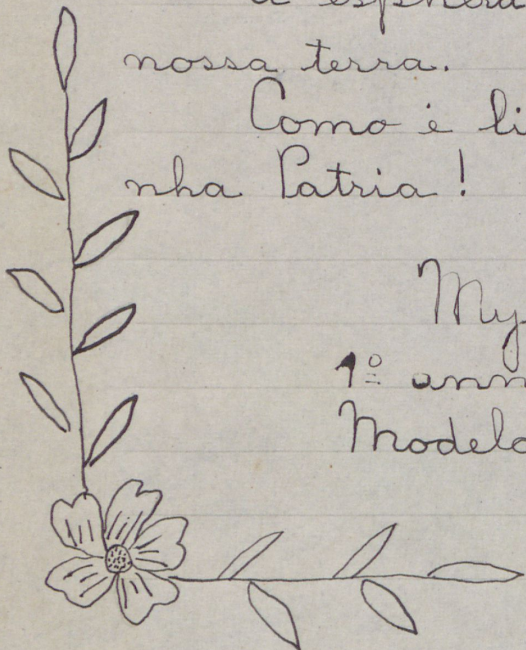 a esphera
nossa terra.
Como é li
nha Patria!
My
1º ann
Modelo